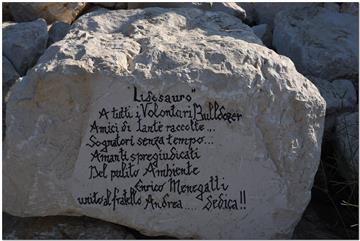 "Lidosauro"
A tutti i Volontari Bulldozer
Amici di tante raccolte...
Sognatori senza tempo...
Amanti spregiudicati
Del pulito Ambiente
Enrico Menegatti
unito al fratello Andrea.... Dedica!!